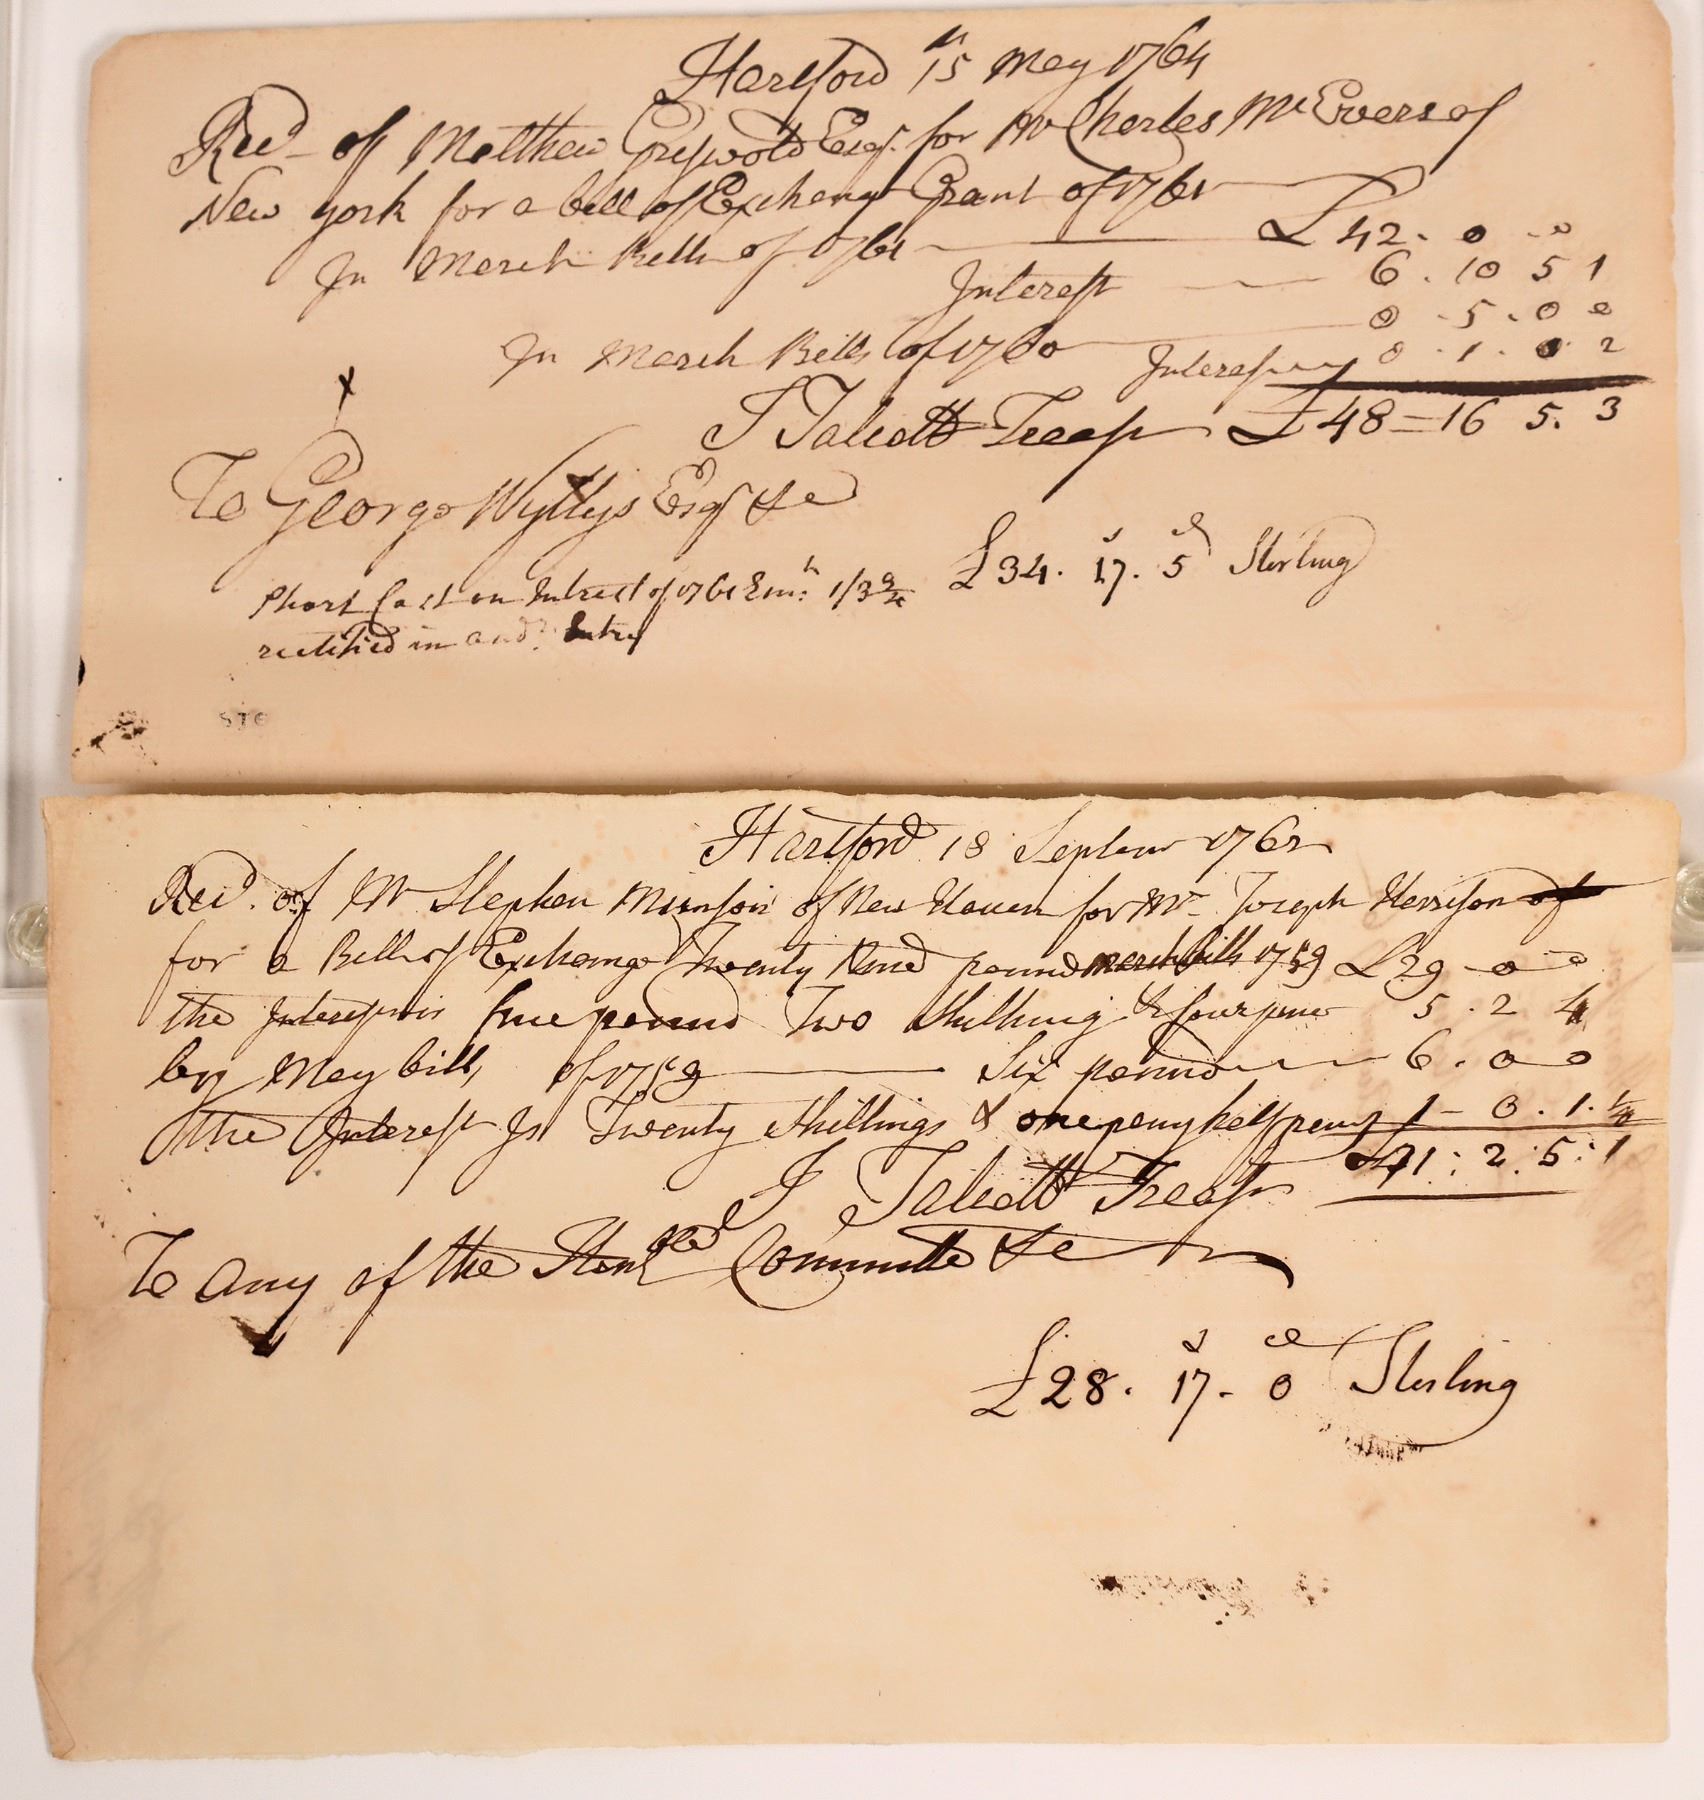 Hartford 15th May 1764
Recd of Matthew Griswold Esqr. for Mr Charles McEvers of
New York for a bill of Exchang Grant of 1761
In March Bills of 1761 £42. 0 - 0
Interest 6. 10 5 1
0 - 5. 0 0
In March Bills of 1760 Interest 0. 1. 0 2
J Talcott Treasr £48=16 5. 3
To George Wyllys Esqr &c
£34. 17s. 5d Sterling
Short Cast on Intrest of 1761 1/3 3/4
rectified in Entry
Hartford 18 Septemr 1762
Recd. of Mr Stephen Munson of New Haven for Mr Joseph Harrison of
for a Bill of Exchange Twenty Nine pound March Bills 1759 £29 - 0 - 0
the Interest is five pound Two Shilling & four penc 5. 2 4
by May bills of 1759 Six pound 6. 0 0
the Interest Is Twenty Shillings & one peny half peny 1 - 0. 1. 1/2
£41: 2: 5: 1
J Talcott Treasr
To any of the Committe &c
£28. 17s. 0d Sterling